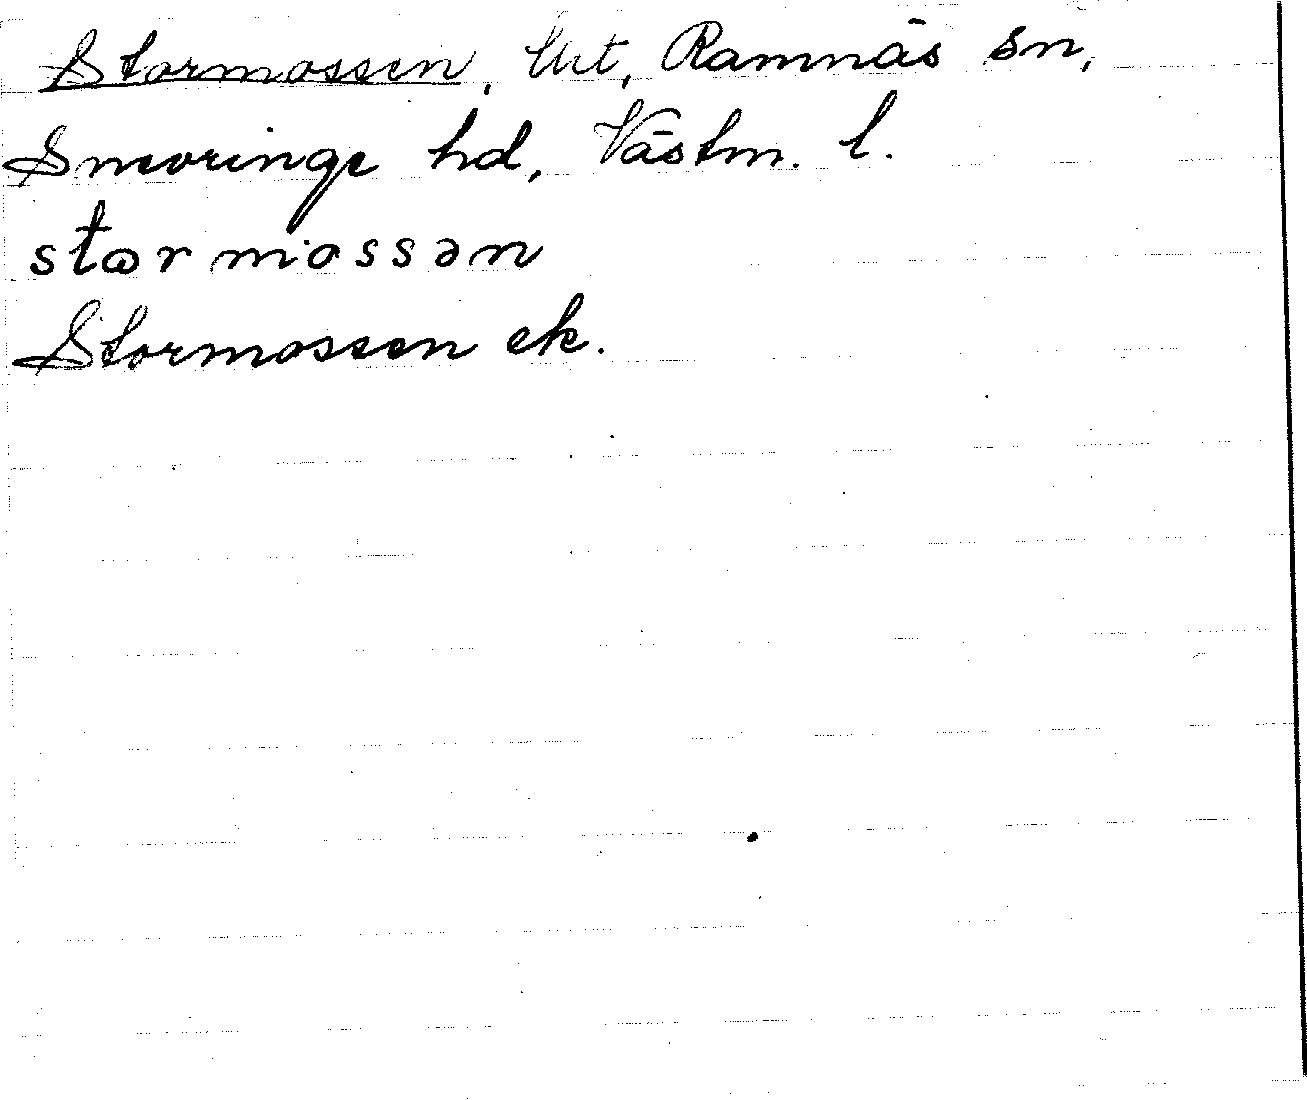 Stormossen, Ramnäs sn,
Snevringe hd, Västm. l.
stωrmossən
Stormossen ek.